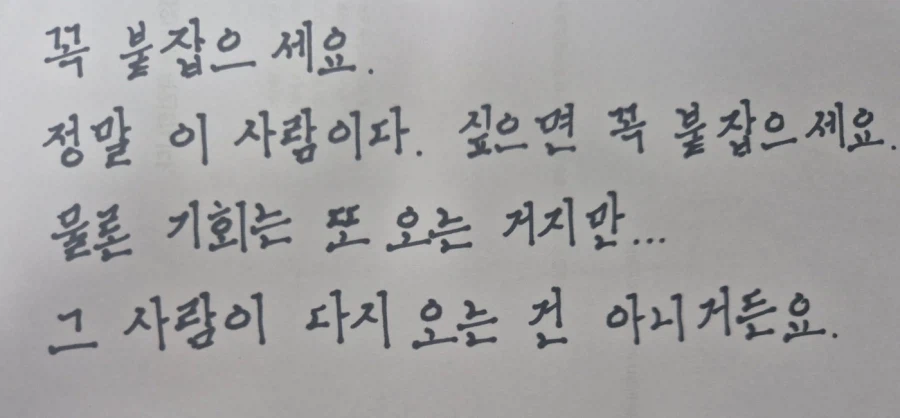 꼭 붙잡으세요.
정말 이 사람이다. 싶으면 꼭 붙잡으세요.
물론 기회는 또 오는 거지만...
그 사람이 다시 오는 건 아니거든요.